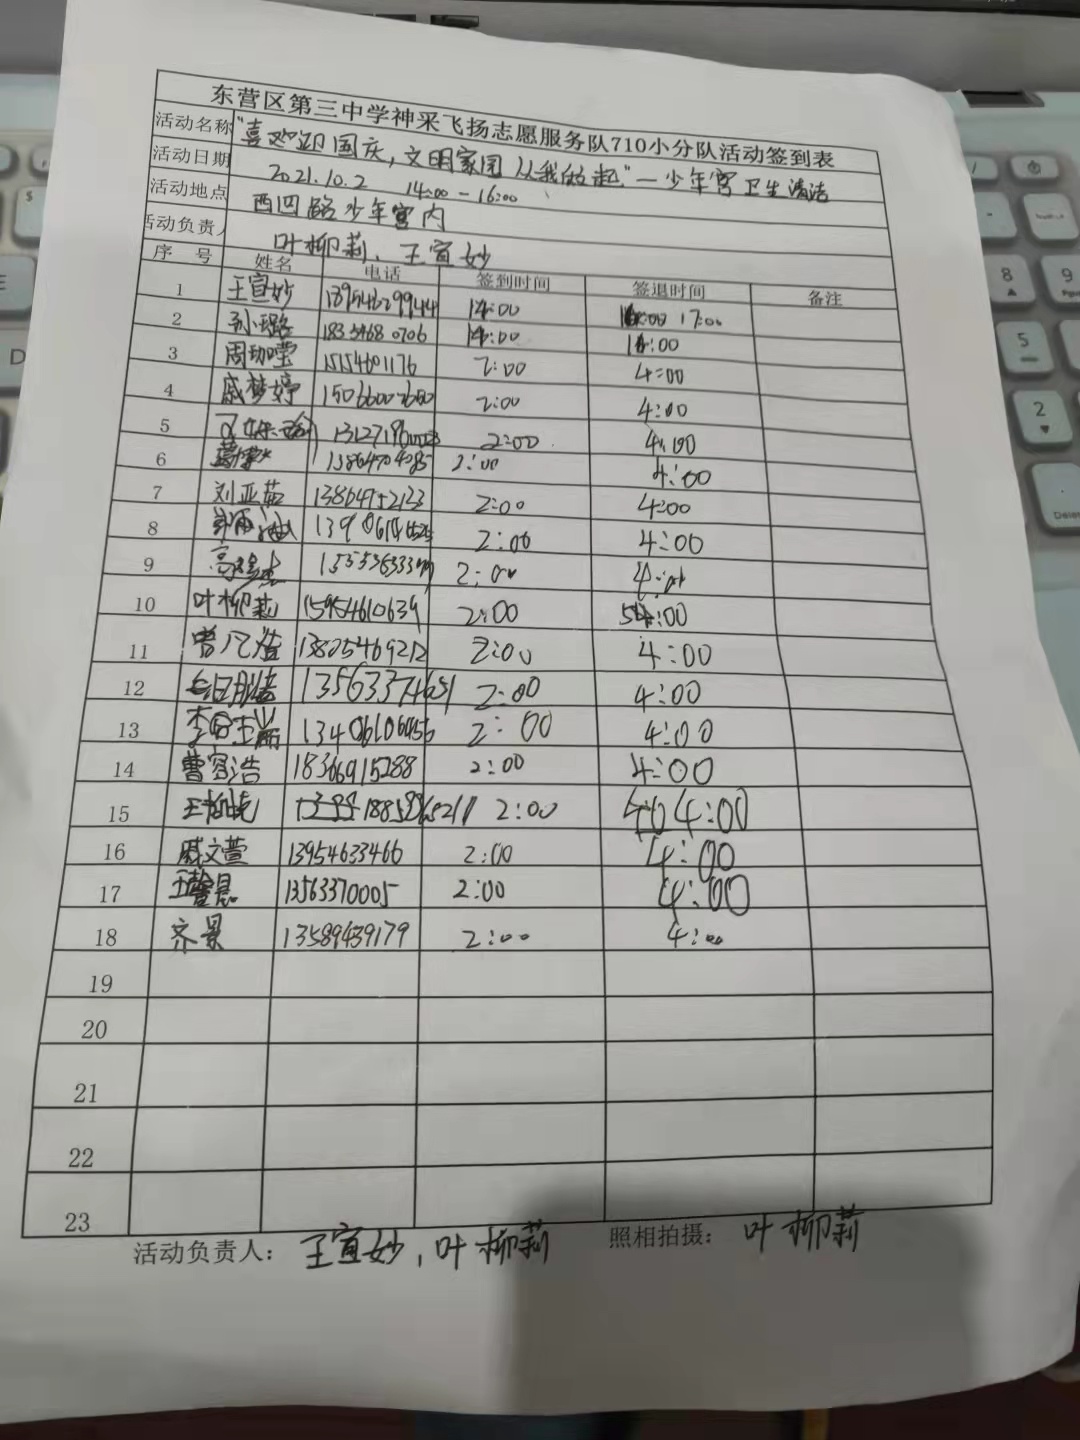 东营区第三中学神采飞扬志愿服务队710小分队活动签到表
活动名称 "喜迎国庆，文明家园从我做起"—少年宫卫生清洁
活动日期 2021.10.2 14:00-16:00
活动地点 西四路少年宫内
活动负责人 叶柳莉、王宣妙
序号 姓名 电话 签到时间 签退时间 备注
1 王宣妙 13954629944 14:00 17:00
2 孙璐 18354680706 14:00 16:00
3 15154601176 2:00 4:00
4 戚梦婷 2:00 4:00
5 2:00 4:00
6 13864704085 2:00 4:00
7 刘亚茹 13864752123 2:00 4:00
8 2:00 4:00
9 2:00 4:00
10 叶柳莉 15954610639 2:00 :00
11 13805469212 2:00 4:00
12 13563374651 2:00 4:00
13 13406106456 2:00 4:00
14 曹容浩 18366915288 2:00 4:00
15 2:00 4:00
16 戚文萱 13954633466 2:00 4:00
17 13563370005 2:00 4:00
18 齐景 13589439179 2:00 4:00
19
20
21
22
23
活动负责人： 王宣妙，叶柳莉 照相拍摄： 叶柳莉